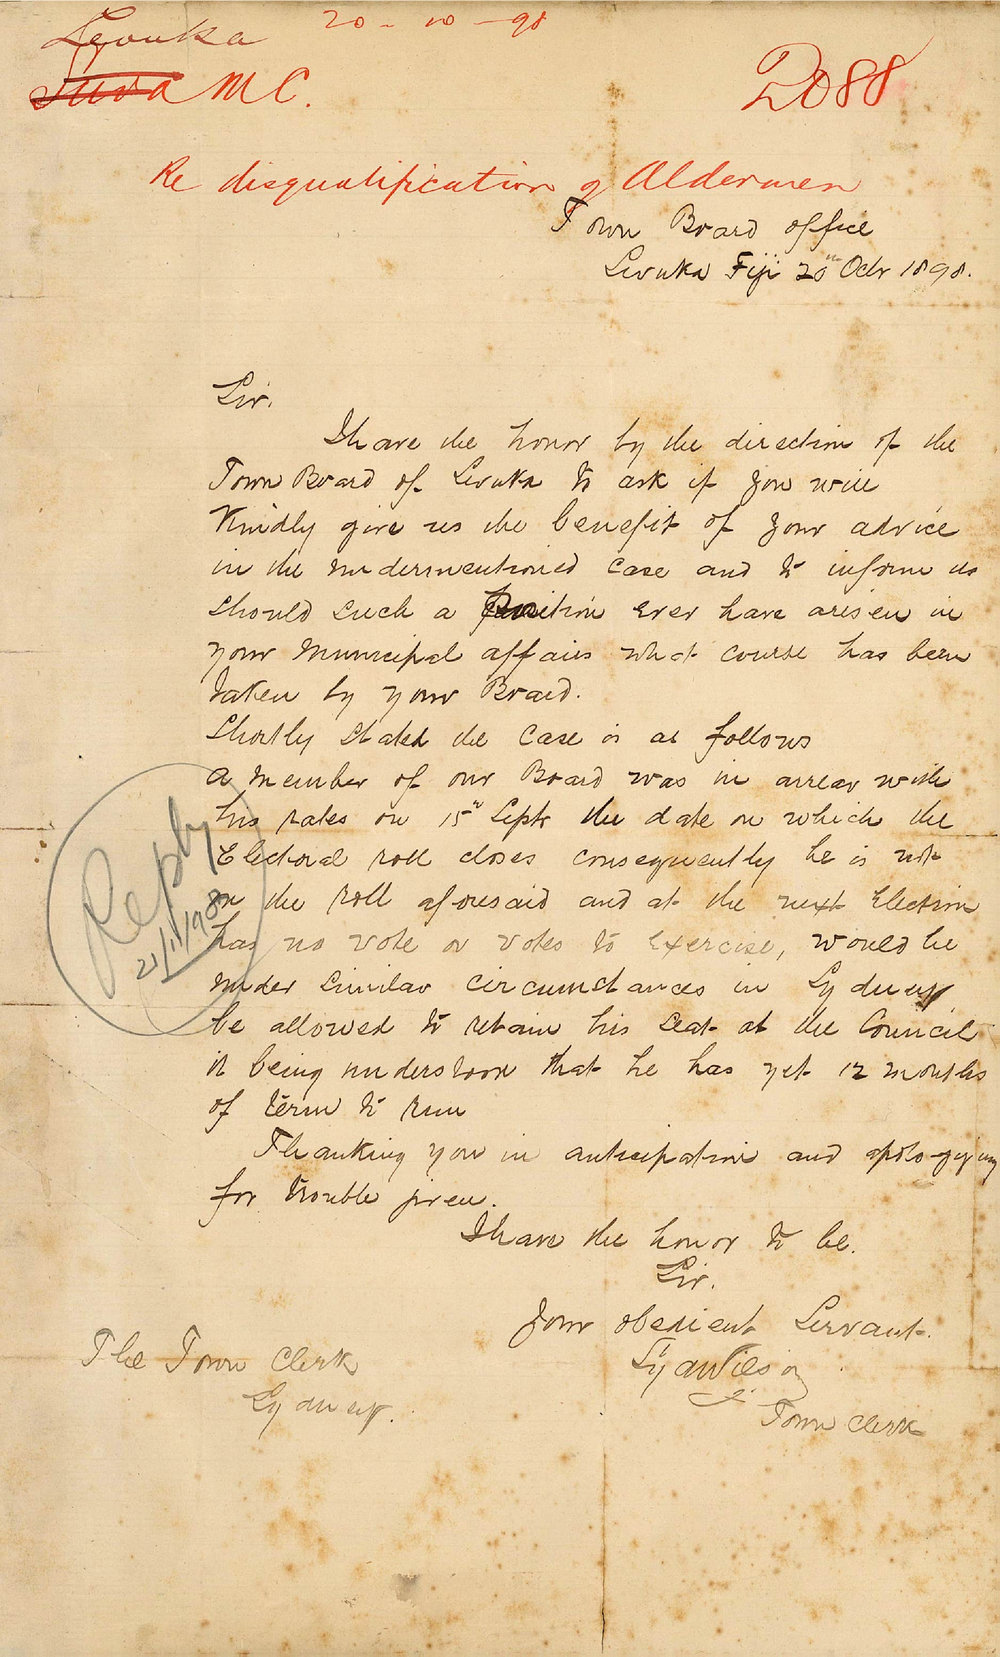 Levuka 20-10-98
Suva M C. 2088
Re disqualification of Aldermen
Town Board office
Levuka Fiji 20th Octr 1898.
Sir.
I have the honor by the direction of the
Town Board of Levuka to ask if you will
Kindly give us the benefit of your advice
in the undermentioned case and to inform us
should such a position ever have arisen in
your Municipal affairs what course has been
taken by your Board.
Shortly stated the case is as follows
a member of our Board was in arrear with
his rates on 15th Septr the date on which the
Electoral roll closes consequently he is not
on the roll aforesaid and at the next Election
has no vote or votes to exercise, would he
under similar circumstances in Sydney
be allowed to retain his seat at the Council
it being understood that he has yet 12 months
of term to run
Thanking you in anticipation and apologizing
for trouble given.
I have the honor to be.
Sir.
Your obedient Servant.
Town Clerk
The Town Clerk
Sydney.
Reply
21/11/98